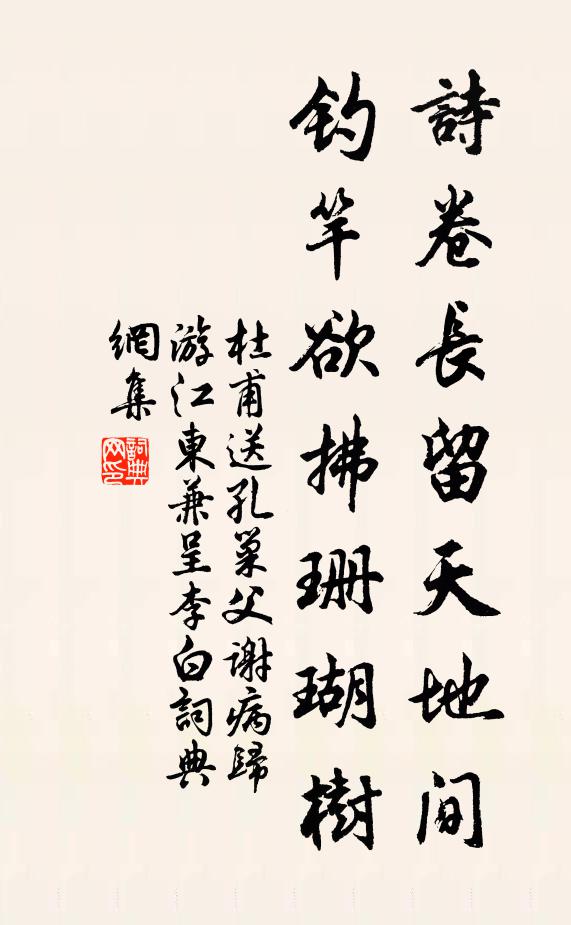 詩卷長留天地间
钓竿欲拂珊瑚樹
杜甫送孔巢父谢病歸
游江東兼呈李白詞典
網集
詞典网印